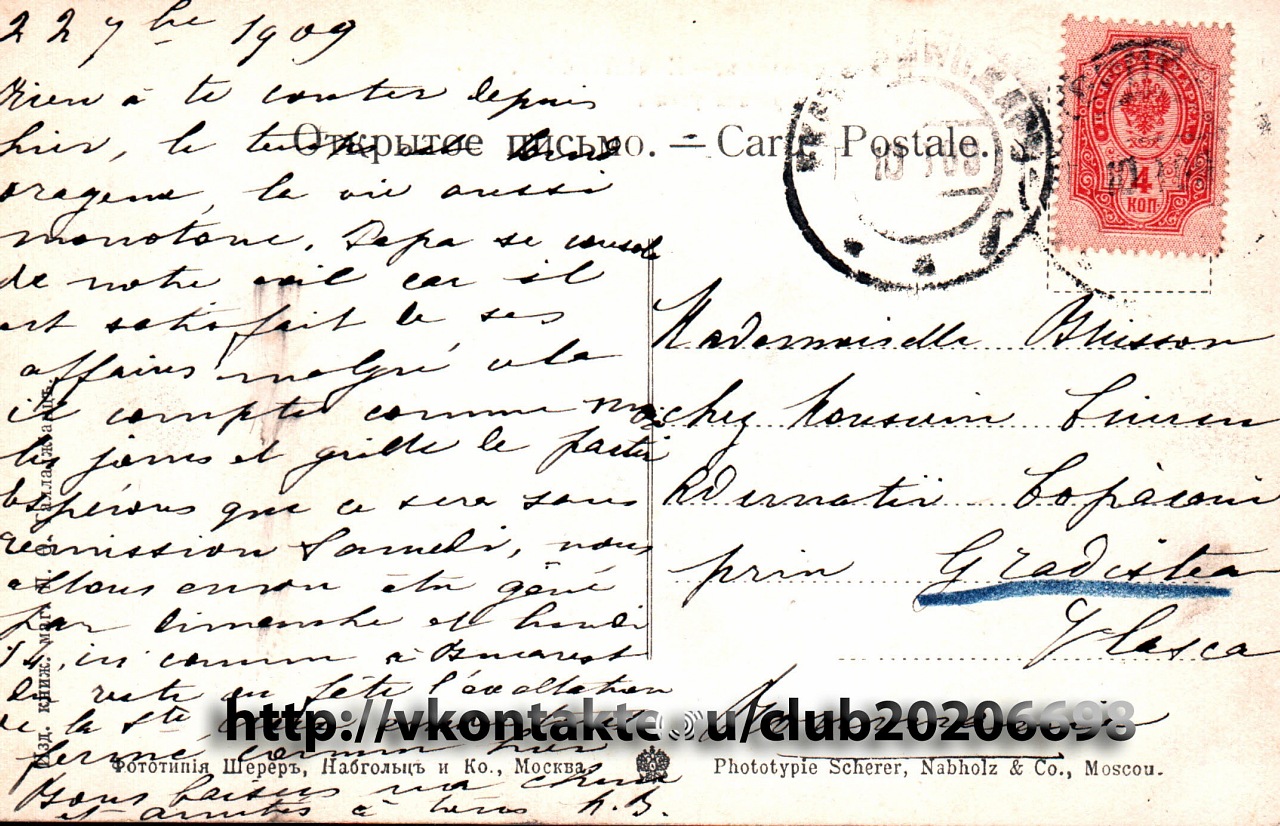 22 7bre 1909
Rien à te conter depuis
hier, le temps est
orageux, la vie aussi
monotone. Papa se console
de notre exil car il
est satisfait de ses
affaires malgré cela
il compte comme moi
les jours et grille de partir
Espérons que ce sera sans
rémission Samedi, nous
allons encore être gêné
par Dimanche et Lundi
14, ici comme à Bucarest
du reste on fête l'exaltation
de la Ste
ferme comme hier
Bons baisers ma
et amitiés à tous A. B.
Открытое письмо. — Carte Postale.
ПОЧТОВАЯ МАРКА
4
КОП.
Mademoiselle Buisson
chez Monsieur
prin Gradistea
Vlasca
Roumanie
Изд. книж. маг.
http://vkontakte.ru/club20206698
Фототипія Шереръ, Набгольцъ и Ко., Москва.
Phototypie Scherer, Nabholz & Co., Moscou.